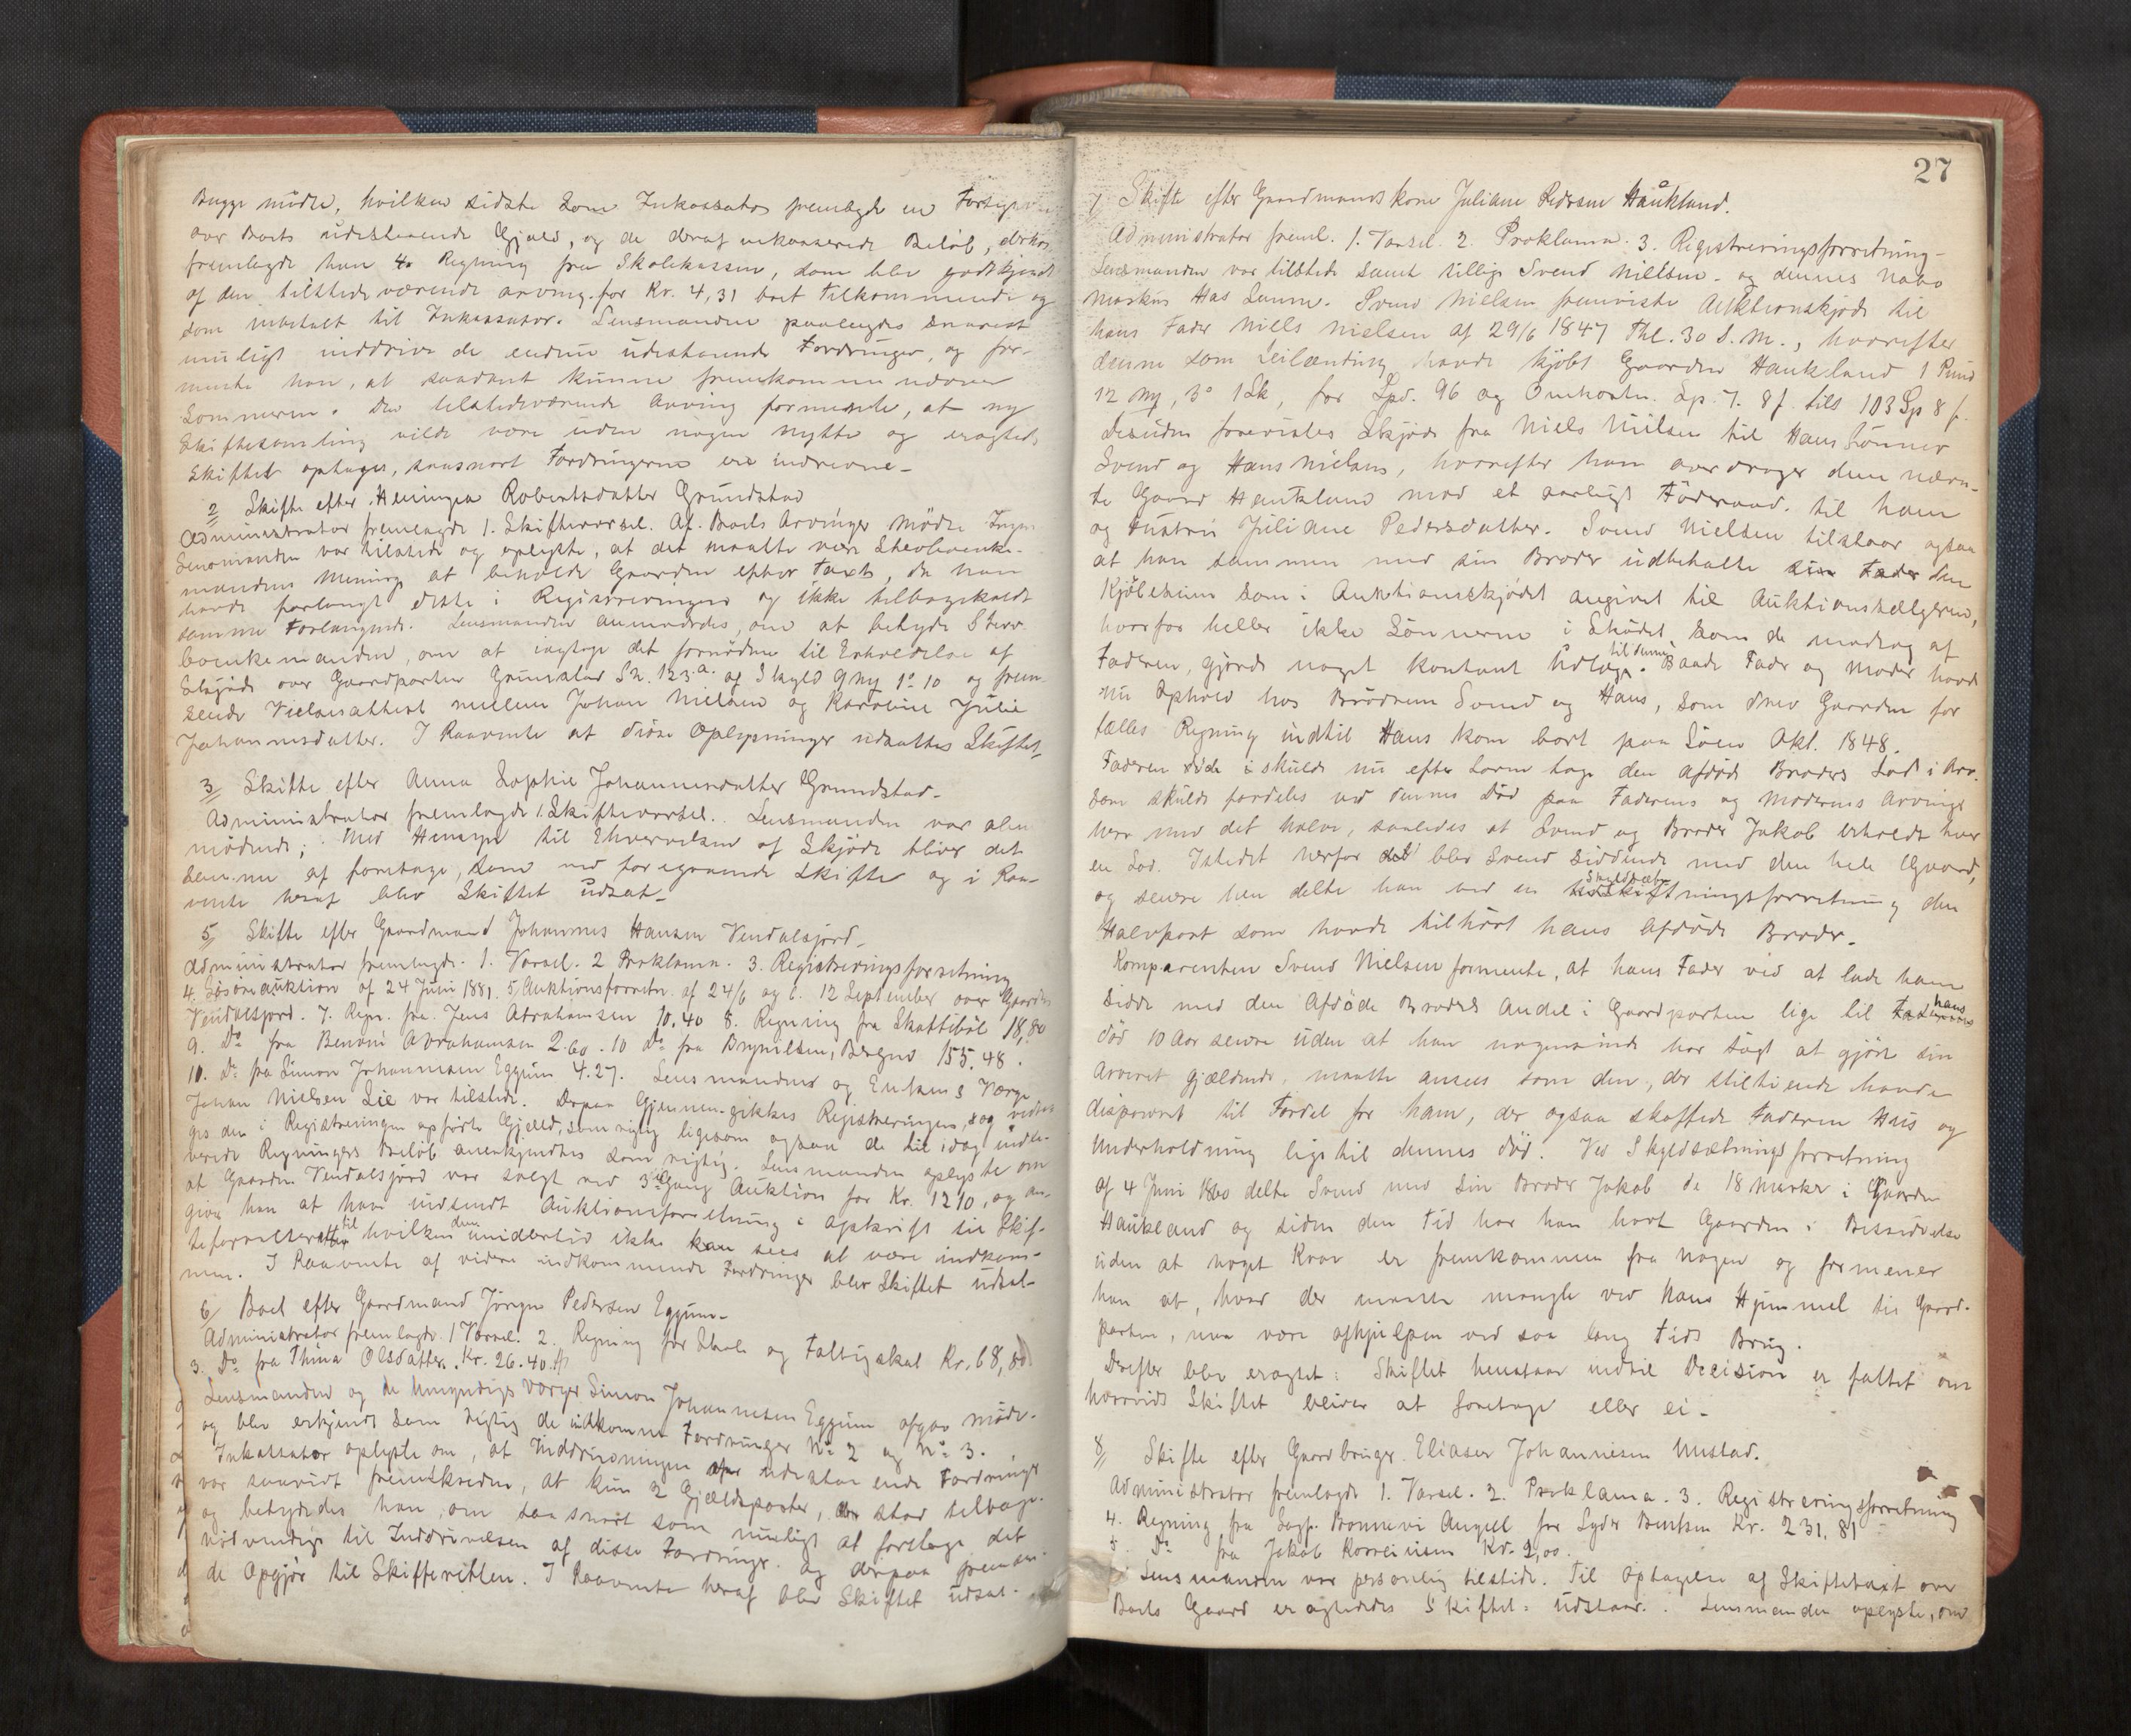 Bugge mødte, hvilken sidste som Inkassator fremlagde en Fortegnelse
over Boets udestaaende Gjæld, og de deraf inkasserede Beløb, derhos
fremlagde han 4. Regning fra Skolekassen, som blev godkjendt
af den tilstedeværende arving for Kr. 4,31 boet tilkommende og
som indbetalt til Inkassator. Lensmanden paalagdes snarest
muligt inddrive de endnu udestaaende Fordringer, og for-
mente han, at saadant kunne fremkomme udover
Sommeren. Den tilstedeværende arving formente, at ny
Skiftesamling vilde være uden nogen nytte og eragtedes
Skiftet optages, saasnart Fordringerne ere inddrevne -
2 Skifte efter Henningea Robertsdatter Grundstad
Administrator fremlagde 1. Skiftevarsel. Af Boets Arvinger mødte Ingen
Lensmanden var tilstede og oplyste, at det maatte være Stervboenke-
mandens Mening at beholde Gaarden efter Taxt, da han
havde forlangt dette i Registreringen og ikke tilbagekaldt
samme Forlangende. Lensmanden anmodedes, om at betyde Sterv-
boenkemanden, om at iagtage det fornødne til Erholdelse af
Skjøde over Gaardparten Grunstad Ln. 123 a. af Skyld 9 my 1° 10 og frem-
sende Vielsesattest mellem Johan Nielsen og Karoline Julie
Johannesdatter. I Paavente af disse Oplysninger udsattes Skiftet
3 Skifte efter Anna Sophie Johannesdatter Grundstad -
Administrator fremlagde 1. Skiftevarsel. Lensmanden var alene
mødende; Med Hensyn til Ehvervelsen af Skjøde bliver det
samme at foretage, som ved foregaaende Skifte og i Paa-
vente heraf blev Skiftet udsat -
5 Skifte efter Gaardmand Johannes Hansen Vendalsjord -
Administrator fremlagde. 1. Varsel. 2 Proklama. 3. Registreringsforretning
4. Løsøreauktion af 24 Juni 1881. 5 Auktionsforretn. af 24/6 og 6. 12 September over Gaarden
Vendalsjord. 7. Regn. fra Jens Abrahamsen 10.40 8. Regning fra Skattebøl 18,80
9. Do fra Benoni Abrahamsen 2.60. 10 Do fra Brynilsen, Bergen 155.48.
10. Do fra Simon Johannesen Eggum 4.27. Lensmanden og Enkens Værge
Johan Nielsen Lie var tilstede. Derpaa gjennemgikkes Registreringen, og vedto-
ges den i Registreringen opførte Gjæld, som rigtig ligesom ogsaa de til idag indle-
verede Regningers Beløb anerkjendtes som rigtig. Lensmanden oplyste om
at Gaarden Vendalsjord var solgt ved 3die Gang Auktion for Kr. 1210, og an-
giver han at have indsendt Auktionsforretning i Afskrift til Skif-
teforvalteren til hvilken den imidlertid ikke kan sees at være indkom-
men. I Paavente af videre indkommende Fordringer blev Skiftet udsat -
6 Boet efter Gaardmand Jörgen Pedersen Eggum -
Administrator fremlagde. 1 Varsel. 2. Regning for Skole og Fattigskat Kr. 68,80
3. Do fra Thina Olsdatter. Kr. 26.40.
Lensmanden og de Umyndiges Værger Simon Johannesen Eggum afgav møde.
og blev erkjendt som rigtig de indkomne Fordringer No 2 og No 3.
Inkassator oplyste om, at Inddrivningen af udestaaende Fordringer
var saavidt fremskreden, at kun 2 Gjældsposter, staa tilbage.
og betydedes han, om saa snart som muligt at foretage det
nødvendige til Inddrivelsen af disse Fordringer. og derpaa fremsen-
de Opgjør til Skifteretten. I Paavente heraf blev Skiftet udsat -
27
7 Skifte efter Gaardmandskone Juliane Pedersen Håukland.
Administrator freml. 1. Varsel. 2. Proklama. 3. Registreringsforretning -
Lensmanden var tilstede samt tillige Svend Nielsen - og dennes Nabo
Markus Has . Svend Nielsen fremviste Auktionskjøde til
hans Fader Niels Nielsen af 29/6 1847 Thl. 30 S. M., hvorefter
denne som Leilænding havde kjøbt Gaarden Haukland 1 Pund
12 my, 3° 1 Sk, for Spd. 96 og Omkostn. Sp. 7. 8 f. tils 103 Sp 8 f.
Desuden foreviste Skjøde fra Niels Nielsen til Hans Sønner
Svend og Hans Nielsen, hvorefter han overdrager dem nævn-
te Gaard Haukland mod et aarligt Føderaad. til ham
og Hustru Juliane Pedersdatter. Svend Nielsen tilstaar ogsaa
at han sammen med sin Broder udbetalte sin Fader den
Kjøbesum som i Auktionsskjødet angivet til Auktionssælgeren,
hvorfor heller ikke Sønnerne i Skødet, som de modtog af
Faderen, gjorde noget kontant Udlæg til denne. Baade Fader og Moder havde
nu Ophold hos Brødrene Svend og Hans, som drev Gaarden for
fælles Regning indtil Hans kom bort paa Søen Okt. 1848.
Faderen skulde nu efter Loven tage den afdøde Broders Lod i Arv.
som skulde fordeles ved dennes Død paa Faderens og Moderens Arvinger
hver med det halve, saaledes at Svend og Broder Jakob erholdt hver
en Lod. Istedet herfor blev Svend siddende med den hele Gaard,
og senere hen delte han ved en Skyldsætningsforretning den
Halvpart som havde tilhørt hans afdøde Broder -
Komparenten Svend Nielsen formente, at hans Fader ved at lade ham
sidde med den Afdøde Broders andel i Gaardparten lige til hans
død 10 Aar senere uden at han nogensinde har søgt at gjøre sin
Arveret gjældende, maatte ansees som den, der stiltiende havde
disponeret til Fordel for ham, der ogsaa skaffede Faderen Hus og
Underholdning lige til dennes død. Ved Skyldsætningsforretning
af 4 Juni 1860 delte Svend med Sin Broder Jakob de 18 Marker i Gaarden
Haukeland og siden den Tid har han havt Gaarden i Besiddelse
uden at noget Krav er fremkommen fra nogen og formener
han at, hvad der maatte mangle ved hans Hjemmel til Gaard-
parten, maa være afhjulpen ved saa lang tids Brug.
Derefter blev eragtet: Skiftet henstaar indtil Decision er faltet om
hvorvidt Skiftet bliver at foretage eller ei -
8 Skifte efter Gaardbruger Eliaser Johannesen Unstad.
Administrator fremlagde 1. Varsel. 2. Proklama. 3. Registreringsforretning
4. Regning fra Sagf. Bonnevi Angell for Lyder Berntsen Kr. 231.81 -
5. Do fra Jakob Kr. 2,00.
Lensmanden var personlig tilstede. Til Optagelse af Skiftetaxt over
Boets Gaard eragtedes Skiftet: udstaar. Lensmanden oplyste, om